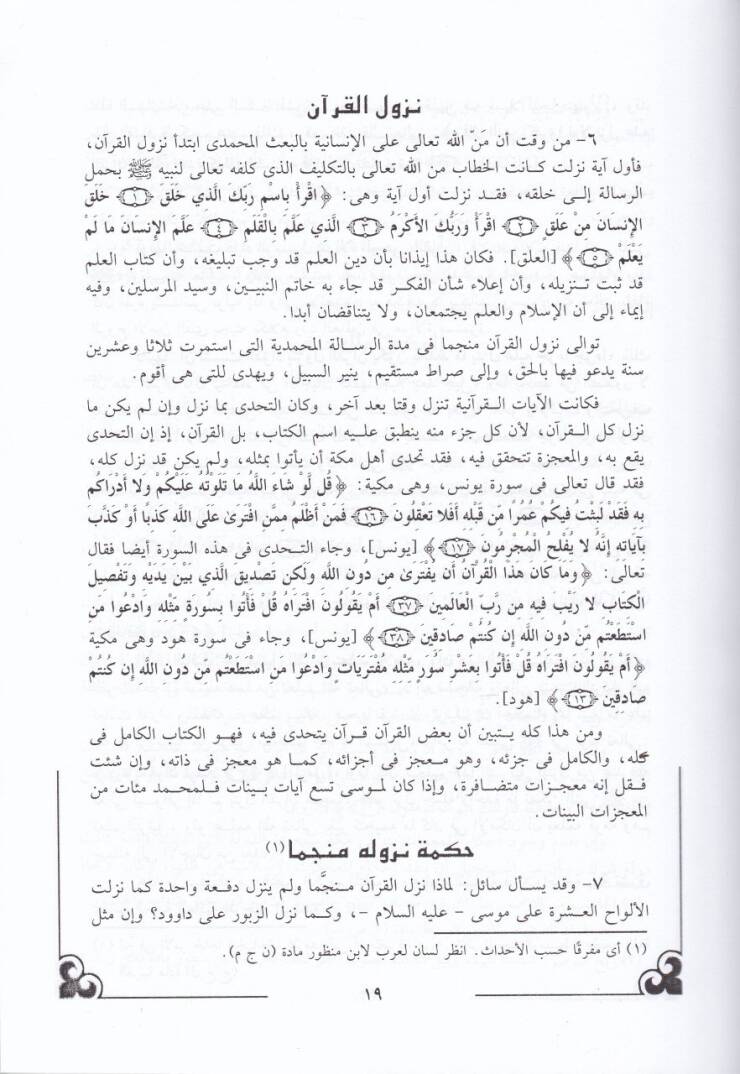 نزول القرآن
٦- من وقت أن مَنّ الله تعالى على الإنسانية بالبعث المحمدى ابتدأ نزول القرآن،
فأول آية نزلت كانت الخطاب من الله تعالى بالتكليف الذى كلفه تعالى لنبيه ﷺ بحمل
الرسالة إلى خلقه، فقد نزلت أول آية وهى: ﴿ اقْرَأْ بِاسْمِ رَبِّكَ الَّذِي خَلَقَ ﴿١﴾ خَلَقَ
الإِنسَانَ مِنْ عَلَقٍ ﴿٢﴾ اقْرَأْ وَرَبُّكَ الأَكْرَمُ ﴿٣﴾ الَّذِي عَلَّمَ بِالْقَلَمِ ﴿٤﴾ عَلَّمَ الإِنسَانَ مَا لَمْ
يَعْلَمْ ﴿٥﴾ ﴾ [العلق]. فكان هذا إيذانا بأن دين العلم قد وجب تبليغه، وأن كتاب العلم
قد ثبت تنزيله، وأن إعلاء شأن الفكر قد جاء به خاتم النبيين، وسيد المرسلين، وفيه
إيماء إلى أن الإسلام والعلم يجتمعان، ولا يتناقضان أبدا.
توالى نزول القرآن منجما فى مدة الرسالة المحمدية التى استمرت ثلاثا وعشرين
سنة يدعو فيها بالحق، وإلى صراط مستقيم، ينير السبيل، ويهدى للتى هى أقوم.
فكانت الآيات القرآنية تنزل وقتا بعد آخر، وكان التحدى بما نزل وإن لم يكن ما
نزل كل القرآن، لأن كل جزء منه ينطبق عليه اسم الكتاب، بل القرآن، إذ إن التحدى
يقع به، والمعجزة تتحقق فيه، فقد تحدى أهل مكة أن يأتوا بمثله، ولم يكن قد نزل كله،
فقد قال تعالى فى سورة يونس، وهى مكية: ﴿ قُل لَّوْ شَاءَ اللَّهُ مَا تَلَوْتُهُ عَلَيْكُمْ وَلا أَدْرَاكُم
بِهِ فَقَدْ لَبِثْتُ فِيكُمْ عُمُرًا مِّن قَبْلِهِ أَفَلا تَعْقِلُونَ ﴿١٦﴾ فَمَنْ أَظْلَمُ مِمَّنِ افْتَرَىٰ عَلَى اللَّهِ كَذِبًا أَوْ كَذَّبَ
بِآيَاتِهِ إِنَّهُ لا يُفْلِحُ الْمُجْرِمُونَ ﴿١٧﴾ ﴾ [يونس]، وجاء التحدى فى هذه السورة أيضا فقال
تعالى: ﴿ وَمَا كَانَ هَذَا الْقُرْآنُ أَن يُفْتَرَىٰ مِن دُونِ اللَّهِ وَلَكِن تَصْدِيقَ الَّذِي بَيْنَ يَدَيْهِ وَتَفْصِيلَ
الْكِتَابِ لا رَيْبَ فِيهِ مِن رَّبِّ الْعَالَمِينَ ﴿٣٧﴾ أَمْ يَقُولُونَ افْتَرَاهُ قُلْ فَأْتُوا بِسُورَةٍ مِّثْلِهِ وَادْعُوا مَنِ
اسْتَطَعْتُم مِّن دُونِ اللَّهِ إِن كُنتُمْ صَادِقِينَ ﴿٣٨﴾ ﴾ [يونس]، وجاء فى سورة هود وهى مكية
﴿ أَمْ يَقُولُونَ افْتَرَاهُ قُلْ فَأْتُوا بِعَشْرِ سُوَرٍ مِّثْلِهِ مُفْتَرَيَاتٍ وَادْعُوا مَنِ اسْتَطَعْتُم مِّن دُونِ اللَّهِ إِن كُنتُمْ
صَادِقِينَ ﴿١٣﴾ ﴾ [هود].
ومن هذا كله يتبين أن بعض القرآن قرآن يتحدى فيه، فهو الكتاب الكامل فى
كله، والكامل فى جزئه، وهو معجز فى أجزائه، كما هو معجز فى ذاته، وإن شئت
فقل إنه معجزات متضافرة، وإذا كان لموسى تسع آيات بينات فلمحمد مئات من
المعجزات البينات.
حكمة نزوله منجما (١)
٧- وقد يسأل سائل: لماذا نزل القرآن منجَّما ولم ينزل دفعة واحدة كما نزلت
الألواح العشرة على موسى - عليه السلام -، وكما نزل الزبور على داوود؟ وإن مثل
(١) أى مفرقًا حسب الأحداث. انظر لسان لعرب لابن منظور مادة (ن ج م).
١٩